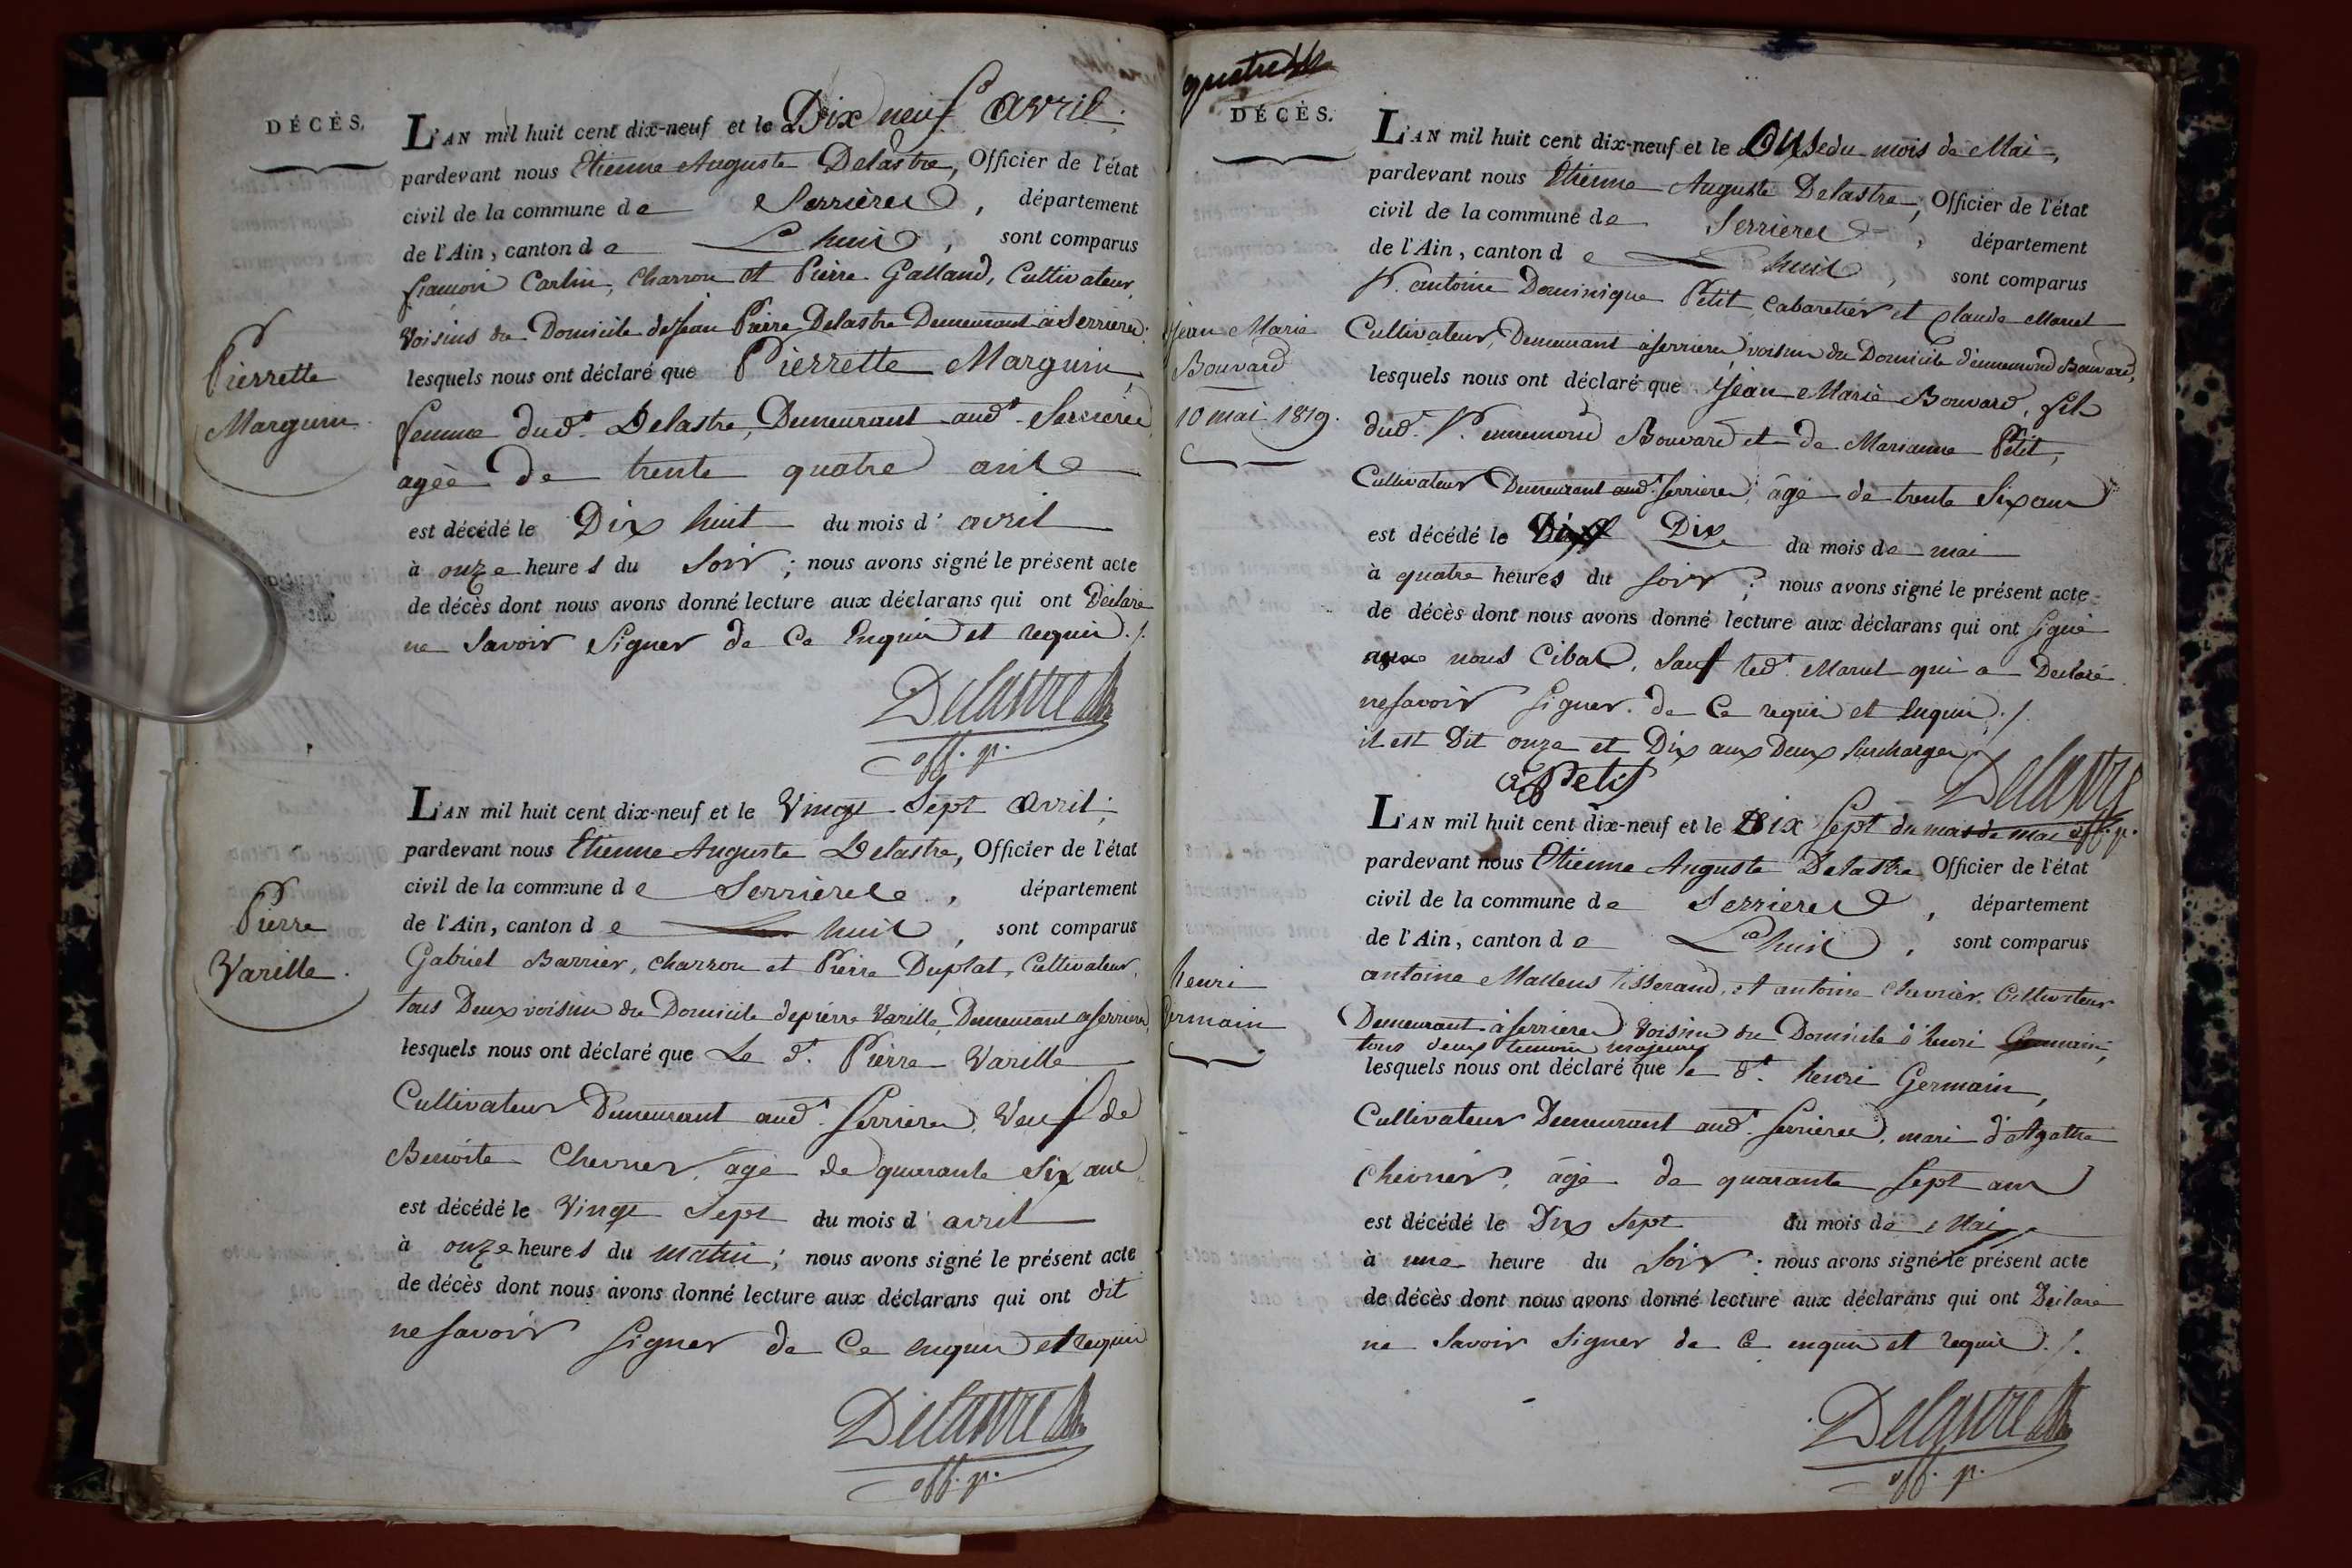 DÉCÈS.
L'AN mil huit cent dix-neuf et le Dix neuf avril;
pardevant nous Etienne Auguste Delastre, Officier de l'état
civil de la commune de Serrières, département
de l'Ain, canton de Lhuis, sont comparus
Carlin, Charron et Pierre Galland, Cultivateur,
voisins du Domicile de Jean Pierre Delastre Demeurant à Serrieres;
Pierrette
Marguin
lesquels nous ont déclaré que Pierrette Marguin,
femme dud.t Delastre, Demeurant aud.t Serrieres
agée de trente quatre ans
est décédé le Dix huit du mois d'avril
à onze heures du Soir; nous avons signé le présent acte
de décès dont nous avons donné lecture aux déclarans qui ont Déclaré
ne Savoir Signer de Ce Enquis et requis./.
Delastre
off. p.
L'AN mil huit cent dix-neuf et le Vingt Sept avril;
pardevant nous Etienne Auguste Delastre, Officier de l'état
civil de la commune de Serrieres, département
de l'Ain, canton de Lhuis, sont comparus
Pierre
Varille.
Gabriel Barrier, charron et Pierre Duplat, Cultivateur,
tous Deux voisins du Domicile de pierre Varille Demeurant a serrieres,
lesquels nous ont déclaré que Le d.t Pierre Varille
Cultivateur Demeurant aud.t Serrieres, Veuf de
Benoite Chevrier, agé de quarante Six ans,
est décédé le Vingt Sept du mois d'avril
à onze heures du matin; nous avons signé le présent acte
de décès dont nous avons donné lecture aux déclarans qui ont dit
ne savoir Signer de Ce enquis et requis
Delastre
off. p.
DÉCÈS.
L'AN mil huit cent dix-neuf et le Onse du mois de Mai,
pardevant nous Etienne Auguste Delastre, Officier de l'état
civil de la commune de Serrieres, département
de l'Ain, canton de Lhuis, sont comparus
S.r antoine Dominique Petit, Cabaretier et Claude
Jean Marie
Bouvard
10 mai 1819.
Cultivateur, Demeurant a serrieres voisins du Domicile d'ennemond Bouvard,
lesquels nous ont déclaré que Jean Marie Bouvard, fils
dud.t S.r ennemond Bouvard et de Marianne Petit,
Cultivateur Demeurant aud.t serrieres, âgé de trente Six ans
est décédé le Dix du mois de mai
à quatre heures du soir; nous avons signé le présent acte
de décès dont nous avons donné lecture aux déclarans qui ont signé
nous Cibas, Sauf led.t qui a Declaré
ne savoir Signer. de Ce requis et Enquis./.
il est Dit onze et Dix aux Deux Surcharges./.
Petit
Delastre
off. p.
L'AN mil huit cent dix-neuf et le Dix Sept du mois de mai
pardevant nous Etienne Auguste Delastre Officier de l'état
civil de la commune de Serrieres, département
de l'Ain, canton de Lhuis, sont comparus
henri
Germain
antoine Mallens tisserand, et antoine Chevrier, Cultivateur
Demeurant à serrieres voisins du Domicile d'henri Germain,
tous deux temoins majeurs
lesquels nous ont déclaré que le d.t henri Germain,
Cultivateur Demeurant aud.t Serrieres, mari d'Agathe
Chevrier, âgé de quarante sept ans
est décédé le Dix Sept du mois de Mai
à une heure du Soir; nous avons signé le présent acte
de décès dont nous avons donné lecture aux déclarans qui ont Déclaré
ne Savoir Signer de Ce enquis et requis./.
Delastre
off. p.